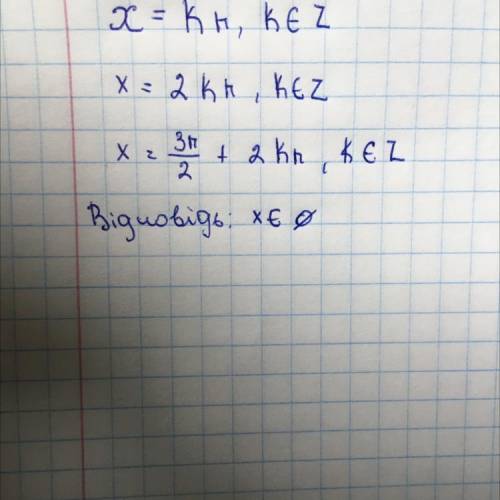 x = kπ, k∈Z
x = 2kπ, k∈Z
x = 3π/2 + 2kπ, k∈Z
Відповідь: x∈ ∅